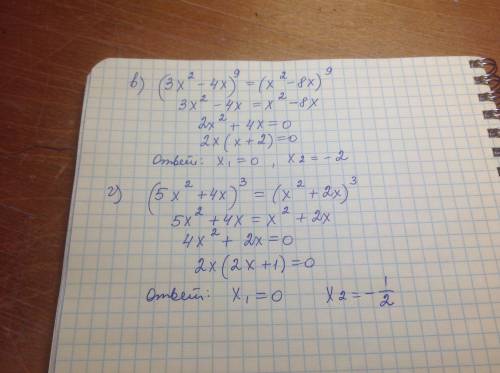 в) (3x² - 4x)⁹ = (x² - 8x)⁹
3x² - 4x = x² - 8x
2x² + 4x = 0
2x(x + 2) = 0
Ответ: x₁ = 0 , x2 = -2
г) (5x² + 4x)³ = (x² + 2x)³
5x² + 4x = x² + 2x
4x² + 2x = 0
2x(2x + 1) = 0
Ответ: x₁ = 0 x2 = -1/2